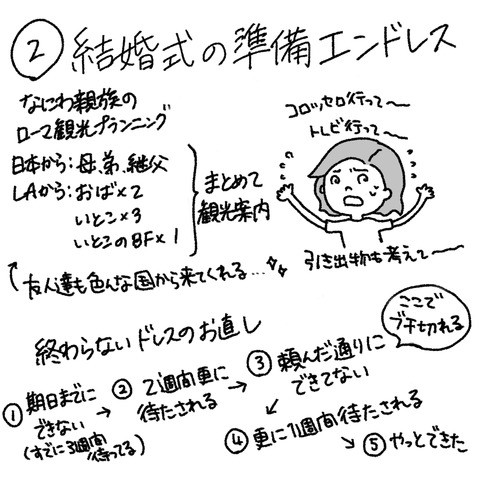 ② 結婚式の準備エンドレス
なにわ親族の
ローマ観光プランニング
日本から:母、弟、継父
LAから:おば×2
いとこ×3
いとこのBF×1
まとめて
観光案内
コロッセロ行って〜
トレビ行って〜
引き出物も考えて〜
友人達も色んな国から来てくれる…
終わらないドレスのお直し
① 期日までに
できない
(すでに3週間
待ってる)
→ ② 2週間更に
待たされる
→ ③ 頼んだ通りに
できてない
ここで
ブチ切れる
④ 更に1週間待たされる
⑤ やっとできた